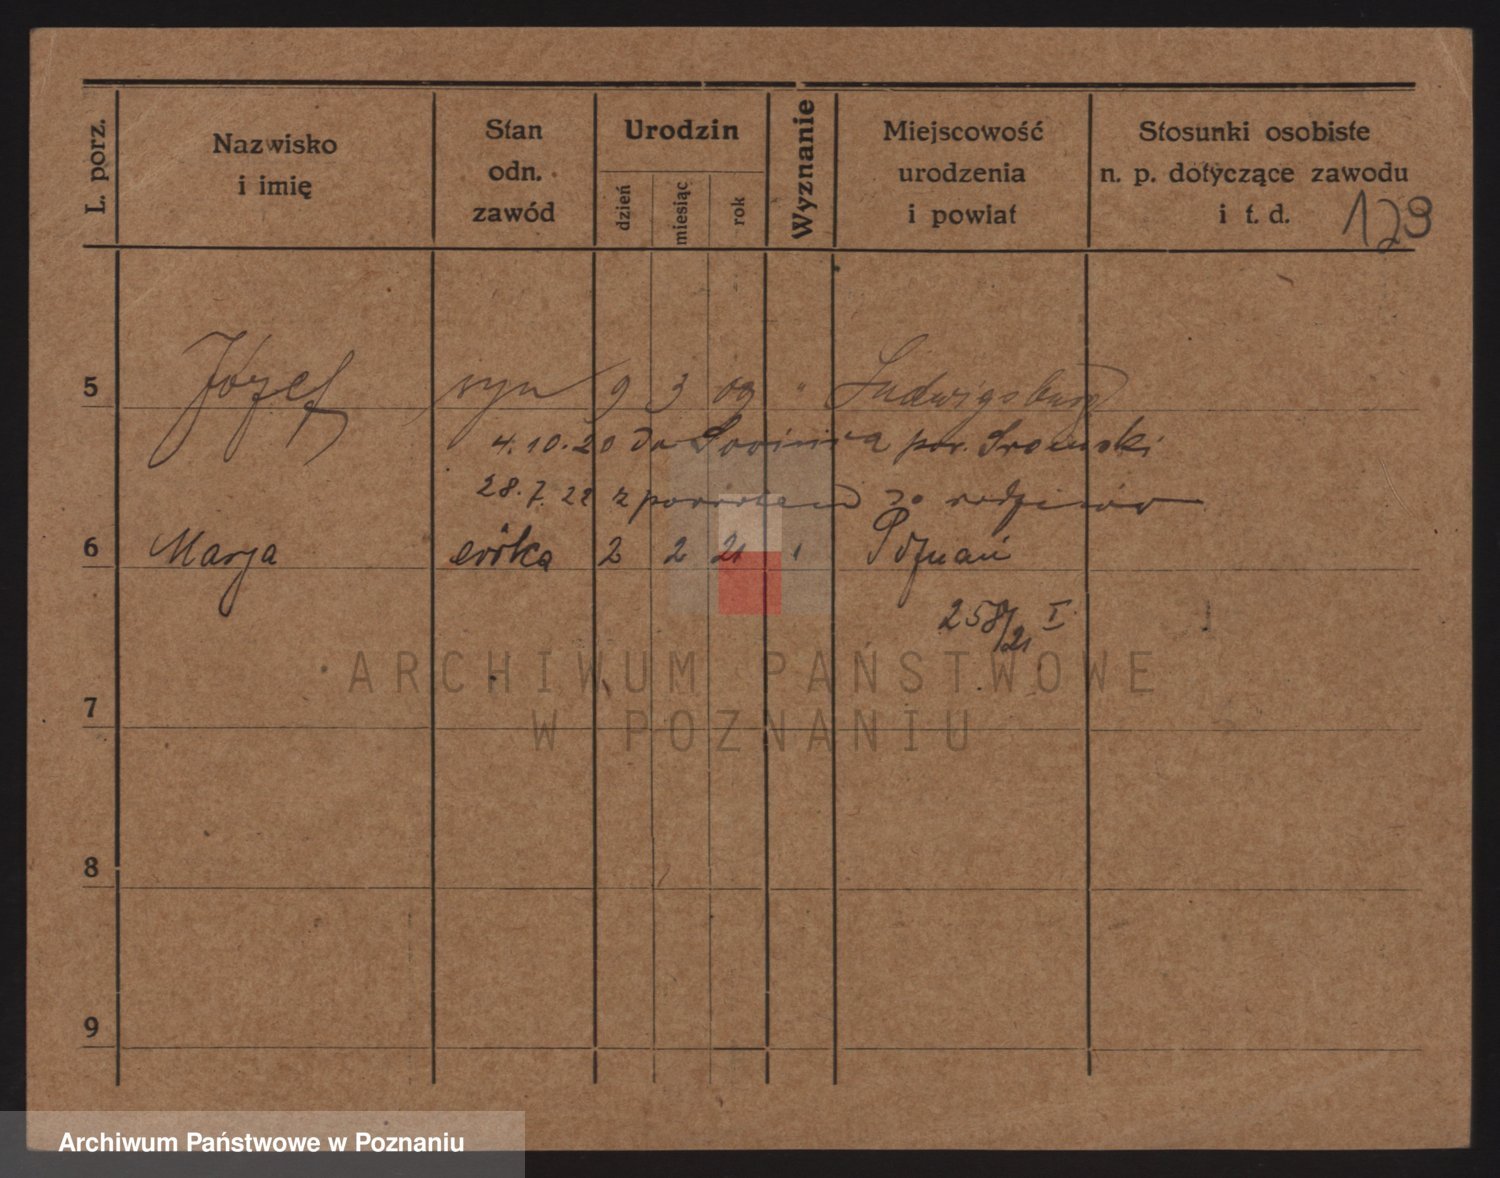 L. porz.
Nazwisko i imię
Stan odn. zawód
Urodzin
dzień
miesiąc
rok
Wyznanie
Miejscowość urodzenia i powiat
Stosunki osobiste n. p. dotyczące zawodu i t. d.
129
5 Józef syn 9 3 09 " Ludwigsburg
4.10.20 do pow. Śremski
28.7.22 z powrotem
6 Marja córka 2 2 21 " Poznań
258/21 I
ARCHIWUM PAŃSTWOWE
W POZNANIU
7
8
9
Archiwum Państwowe w Poznaniu